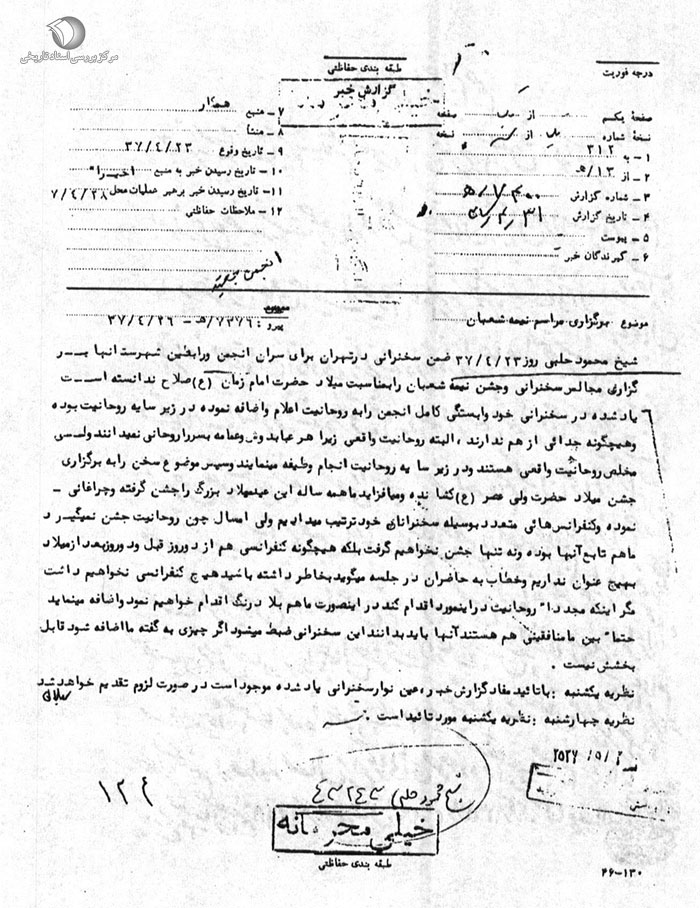 مرکز بررسی اسناد تاریخی
درجه فوریت
طبقه بندی حفاظتی
گزارش خبر
صفحهٔ یکم از صفحه
نسخهٔ شماره از نسخه
۱ - به ۳۱۲
۲ - از ۱۳/ه‍
۳ - شماره گزارش
۴ - تاریخ گزارش
۵ - پیوست
۶ - گیرندگان خبر
۷ - منبع همکار
۸ - منشأ
۹ - تاریخ وقوع ۳۷/٤/۲۳
۱۰ - تاریخ رسیدن خبر به منبع اخیرا"
۱۱ - تاریخ رسیدن خبر برهبر عملیات محل ۷/٤/۲۸
۱۲ - ملاحظات حفاظتی
انجمن حجتیه
موضوع برگزاری مراسم نیمه شعبان
پیرو : ۷۳۷۶/ه‍ - ۳۷/٤/۲۶
شیخ محمود حلبی روز ۳۷/٤/۲۳ ضمن سخنرانی درتهران برای سران انجمن ورابطین شهرستانها بـر
گزاری مجالس سخنرانی وجشن نیمه شعبان رابمناسبت میلاد حضرت امام زمان (ع)صلاح ندانسته اسـت
یادشده درسخنرانی خود وابستگی کامل انجمن رابه روحانیت اعلام واضافه نموده در زیر سایه روحانیت بوده
وهیچگونه جدائی ازهم ندارند ، البته روحانیت واقعی زیرا هر عبابدوش وعمامه بسرراروحانی نمیدانند ولـی
مخلص روحانیت واقعی هستند ودر زیر سایه روحانیت انجام وظیفه مینمایند وسپس موضوع سخن رابه برگزاری
جشن میلاد حضرت ولی عصر (ع)کشانده ومیافزاید ماهمه ساله این عیدمیلاد بزرگ راجشن گرفته وچراغانی -
نموده وکنفرانس هائی متعدد بوسیله سخنرانان خود ترتیب میدادیم ولی امسال چون روحانیت جشن نمیگیـرد
ماهم تابع آنها بوده ونه تنها جشن نخواهیم گرفت بلکه هیچگونه کنفرانسی هم از دوروز قبل ودوروزبعدازمیلاد
بهیچ عنوان نداریم وخطاب به حاضران در جلسه میگوید بخاطر داشته باشید هیچ کنفرانسی نخواهیم داشت
مگر اینکه مجددا" روحانیت دراینمورد اقدام کند در اینصورت ماهم بلا درنگ اقدام خواهیم نمود واضافه مینماید
حتما" بین مامنافقینی هم هستند آنها بایدبدانند این سخنرانی ضبط میشود اگر چیزی به گفته ما اضافه شود قابل
بخشش نیست .
نظریه یکشنبه : باتائید مفادگزارش خبر ، عین نوارسخنرانی یادشده موجود است در صورت لزوم تقدیم خواهدشد
نظریه چهارشنبه : نظریه یکشنبه مورد تائید است .
شیخ محمود حلبی
۱۲٤
خیلی محرمانه
طبقه بندی حفاظتی
۲۶-۱۳۰